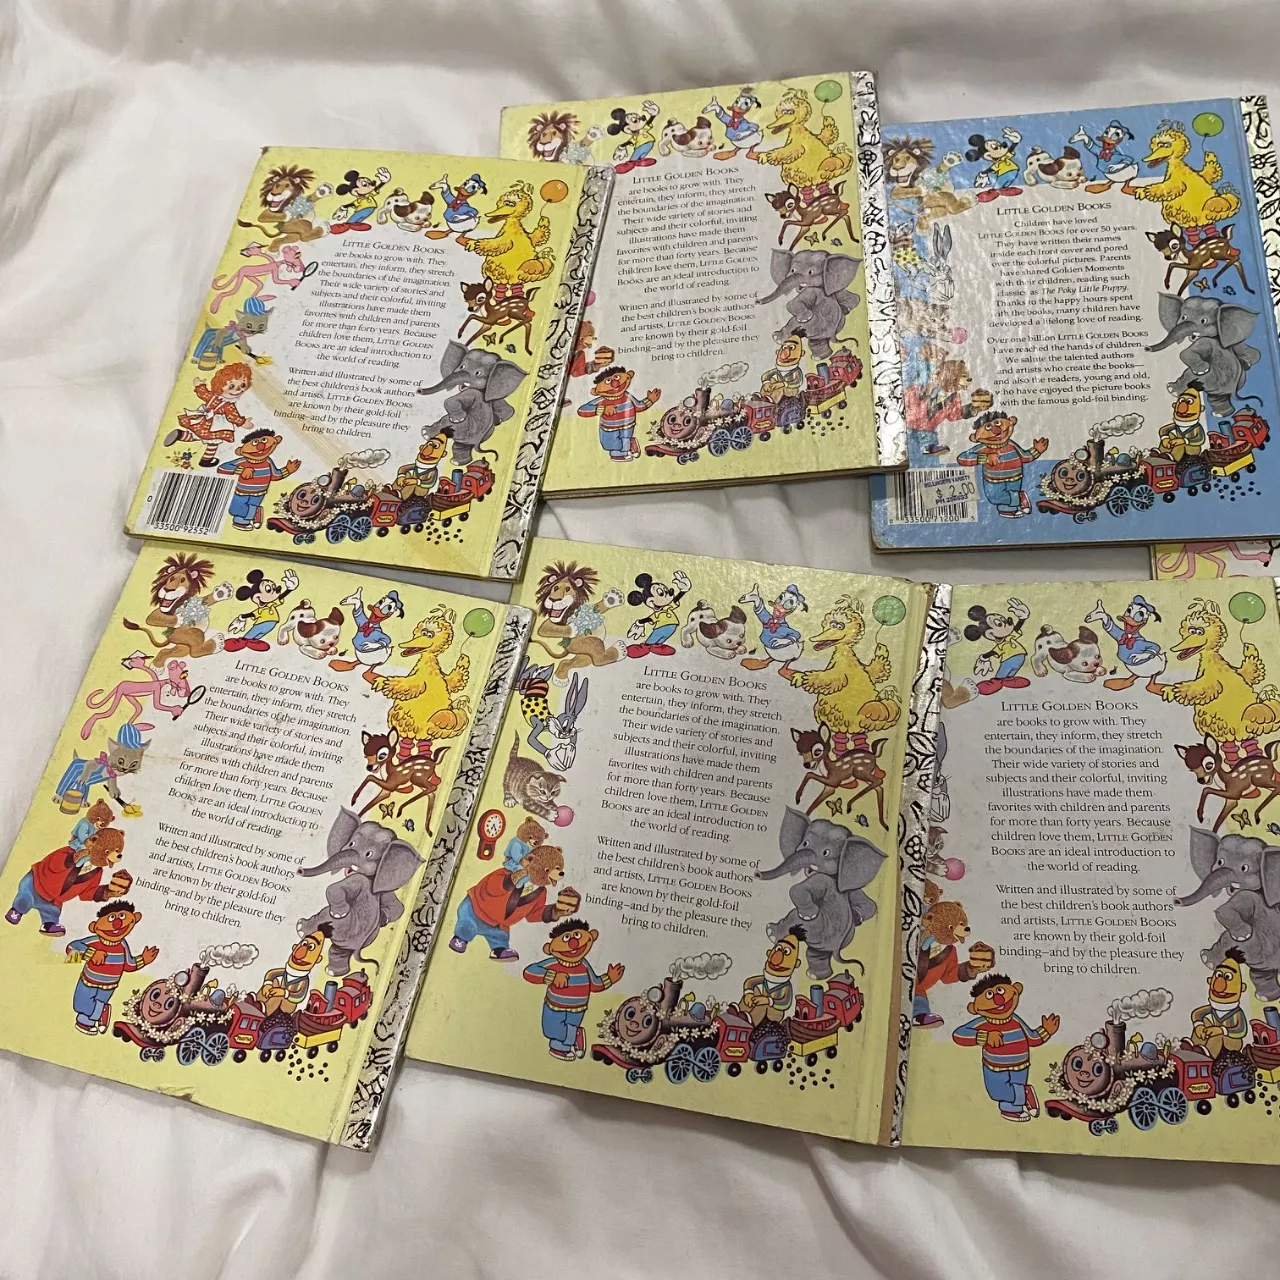 LITTLE GOLDEN BOOKS
are books to grow with. They
entertain, they inform, they stretch
the boundaries of the imagination.
Their wide variety of stories and
subjects and their colorful, inviting
illustrations have made them
favorites with children and parents
for more than forty years. Because
children love them, LITTLE GOLDEN
BOOKS are an ideal introduction to
the world of reading.
Written and illustrated by some of
the best children's book authors
and artists, LITTLE GOLDEN BOOKS
are known by their gold-foil
binding—and by the pleasure they
bring to children.
0
33500 92552
LITTLE GOLDEN BOOKS
are books to grow with. They
entertain, they inform, they stretch
the boundaries of the imagination.
Their wide variety of stories and
subjects and their colorful, inviting
illustrations have made them
favorites with children and parents
for more than forty years. Because
children love them, LITTLE GOLDEN
BOOKS are an ideal introduction to
the world of reading.
Written and illustrated by some of
the best children's book authors
and artists, LITTLE GOLDEN BOOKS
are known by their gold-foil
binding—and by the pleasure they
bring to children.
LITTLE GOLDEN BOOKS
Children have loved
LITTLE GOLDEN BOOKS for over 50 years.
They have written their names
inside each front cover and pored
over the colorful pictures. Parents
have shared Golden Moments
with their children, reading such
classics as The Poky Little Puppy.
Thanks to the happy hours spent
with the books, many children have
developed a lifelong love of reading.
Over one billion LITTLE GOLDEN BOOKS
have reached the hands of children.
We salute the talented authors
and artists who create the books—
and also the readers, young and old,
who have enjoyed the picture books
with the famous gold-foil binding.
$ 2.00
0 33500 71200 5
LITTLE GOLDEN BOOKS
are books to grow with. They
entertain, they inform, they stretch
the boundaries of the imagination.
Their wide variety of stories and
subjects and their colorful, inviting
illustrations have made them
favorites with children and parents
for more than forty years. Because
children love them, LITTLE GOLDEN
BOOKS are an ideal introduction to
the world of reading.
Written and illustrated by some of
the best children's book authors
and artists, LITTLE GOLDEN BOOKS
are known by their gold-foil
binding—and by the pleasure they
bring to children.
TOOTLE
LITTLE GOLDEN BOOKS
are books to grow with. They
entertain, they inform, they stretch
the boundaries of the imagination.
Their wide variety of stories and
subjects and their colorful, inviting
illustrations have made them
favorites with children and parents
for more than forty years. Because
children love them, LITTLE GOLDEN
BOOKS are an ideal introduction to
the world of reading.
Written and illustrated by some of
the best children's book authors
and artists, LITTLE GOLDEN BOOKS
are known by their gold-foil
binding—and by the pleasure they
bring to children.
TOOTLE
LITTLE GOLDEN BOOKS
are books to grow with. They
entertain, they inform, they stretch
the boundaries of the imagination.
Their wide variety of stories and
subjects and their colorful, inviting
illustrations have made them
favorites with children and parents
for more than forty years. Because
children love them, LITTLE GOLDEN
BOOKS are an ideal introduction to
the world of reading.
Written and illustrated by some of
the best children's book authors
and artists, LITTLE GOLDEN BOOKS
are known by their gold-foil
binding—and by the pleasure they
bring to children.
TOOTLE